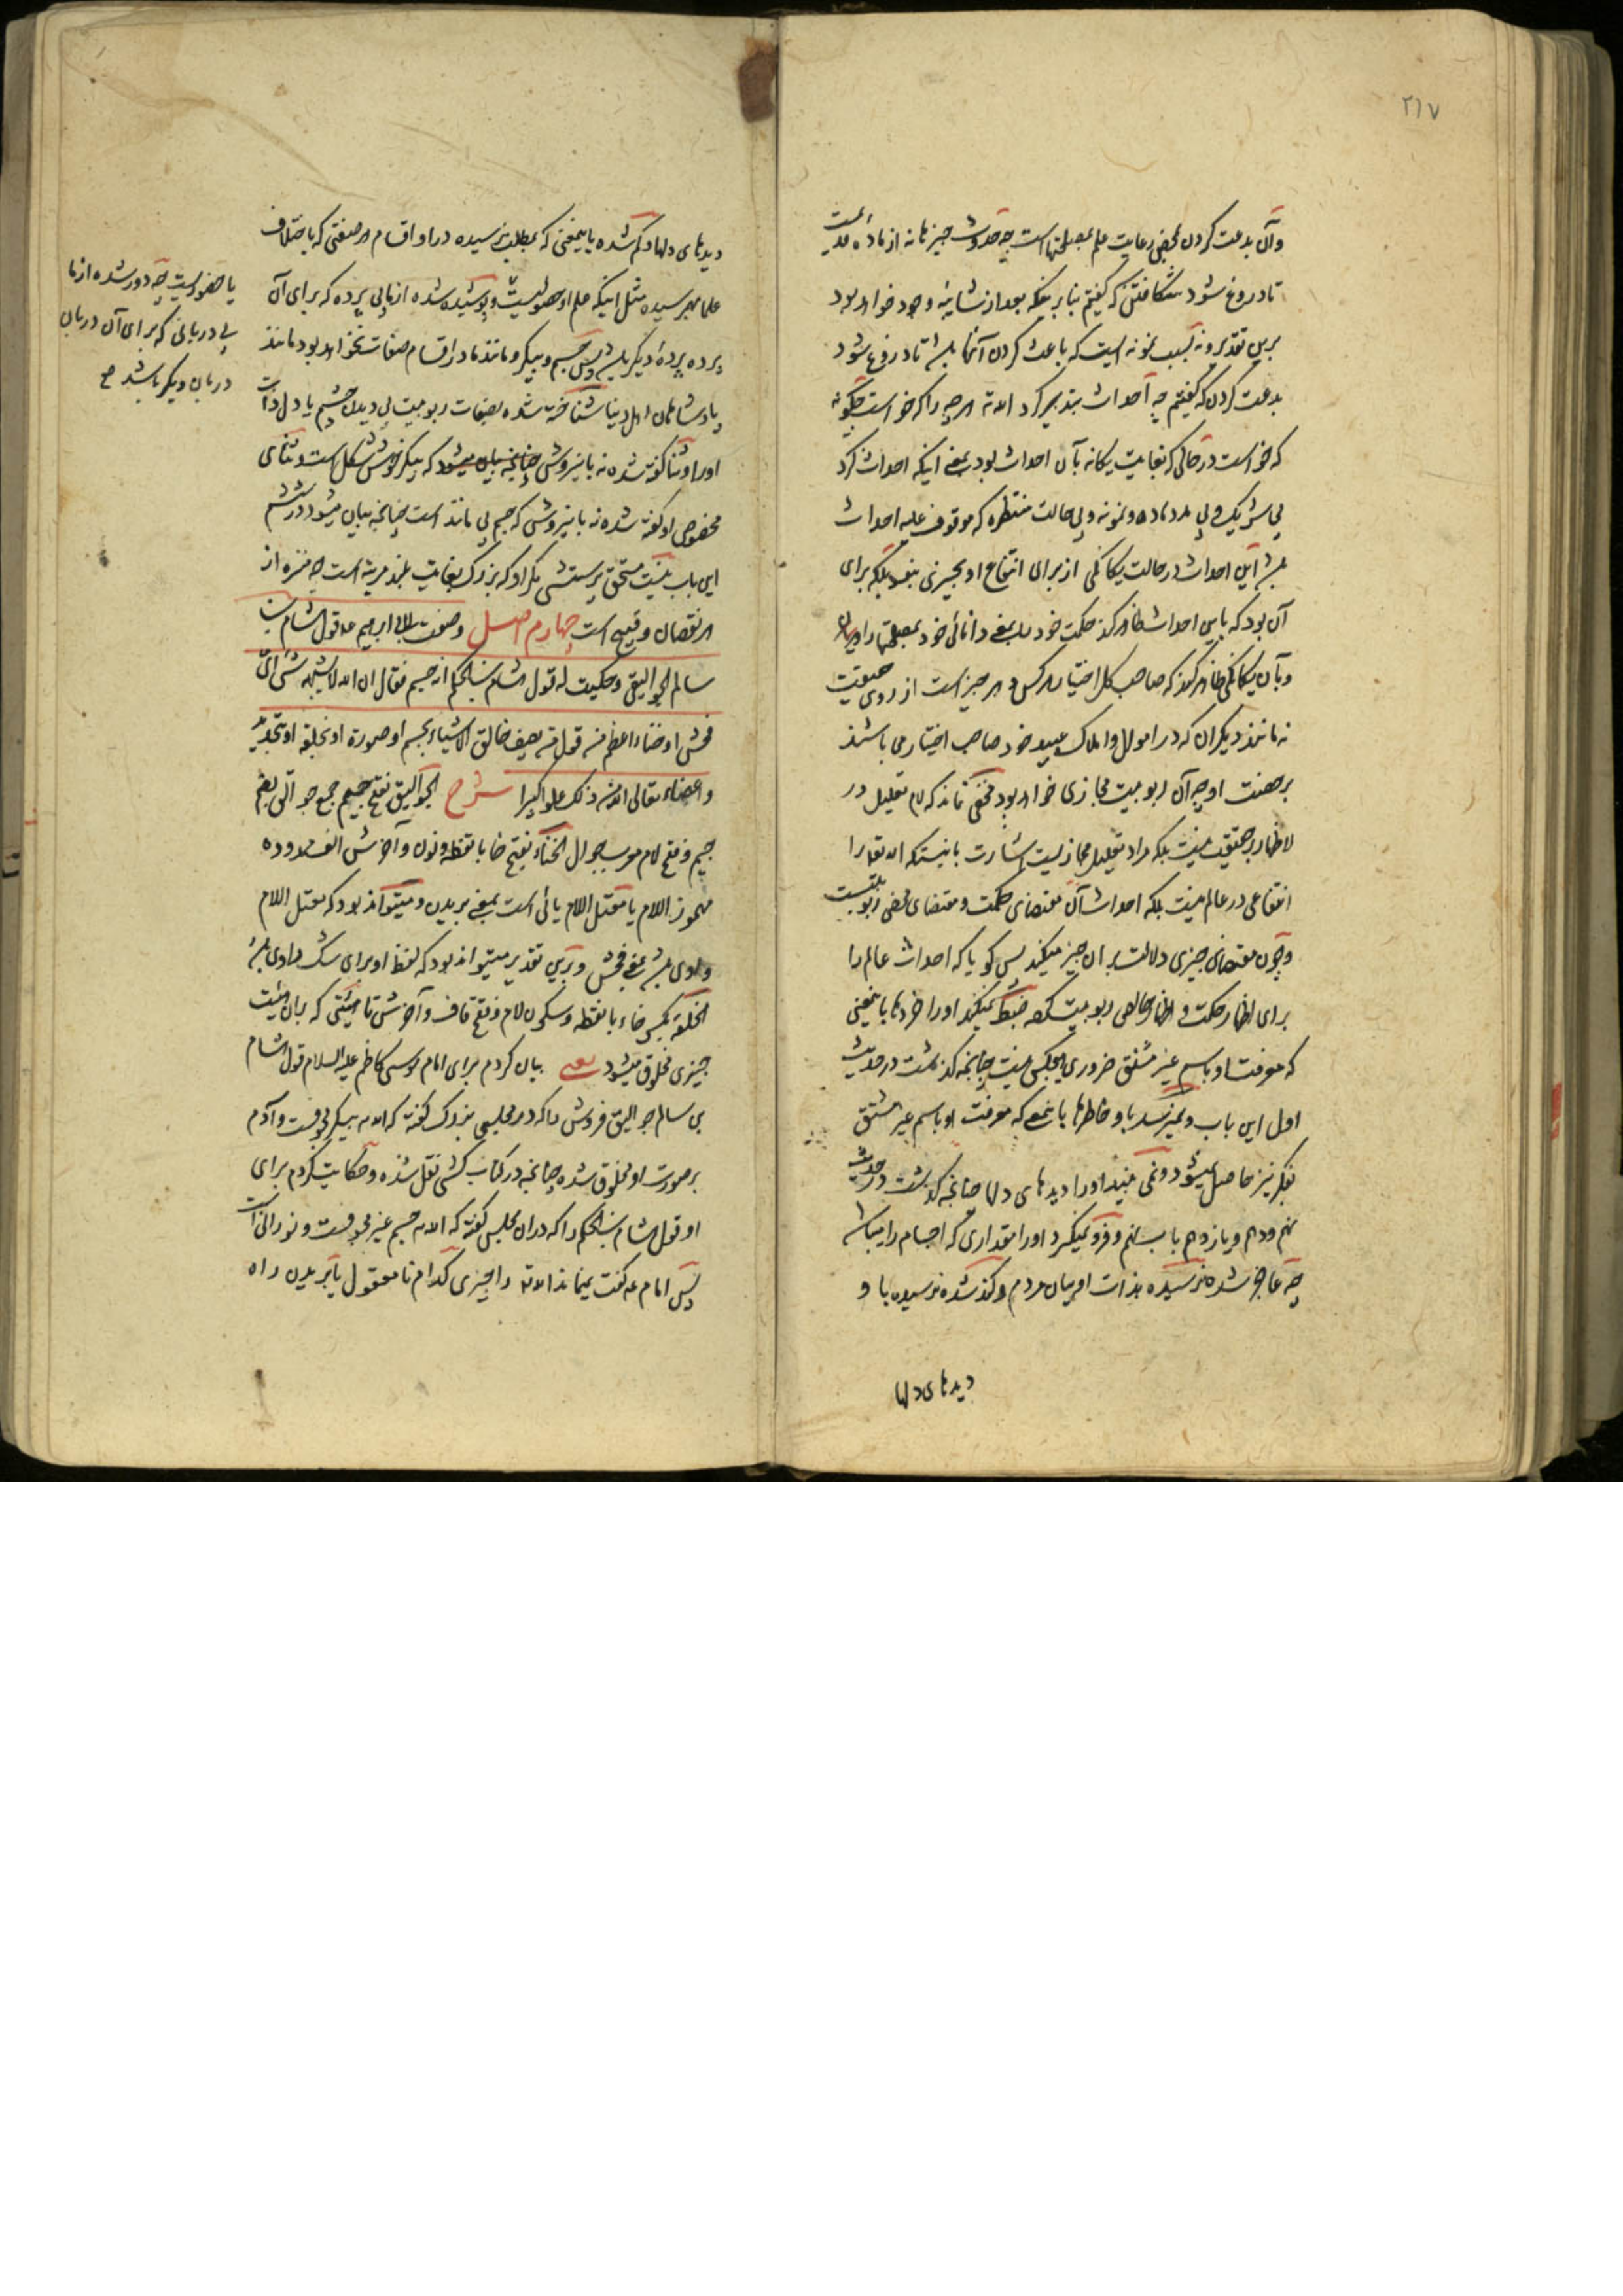 ٢٦٧
وآن بدعت کردن بمحض رعایت علم بمصلحتهاست چه حدوث چیزها نه از ماده قدیمست
تا دروغ شود شکافتن که گفتیم بنابر اینکه بعد از وجود خواهد بود
برین تقدیر و نه بسبب نمونه ایست که باعث کردن آنها باشد تا دروغ شود
بدعت کردن که گفتیم چه احداث بتدبیر کرد الله تعالی هر چه را که خواست چگونه
که خواست در حالی که بغایت یکانه بآن احداث بود بمعنی اینکه احداث کرد
بی شریک و بی مدد ماده و نمونه و بی حالت منتظره که موقوف علیه احداث
باشد این احداث در حالت یکانگی از برای انتفاع او بچیزی نبود بلکه برای
آن بود که باین احداث ظاهر کند حکمت خود را بمعنی دانائی خود بمصلحتها را
وبآن یکانگی ظاهر کند که صاحب کل اختیار هر کس و هر چیز است از روی حقیقت
نه مانند دیگران که در اموال و املاک و عبید خود صاحب اختیار می باشند
بر صفت او چه آن ربوبیت مجازی خواهد بود مخفی نماند که لام تعلیل در
لاظهار بر حقیقت نیست بلکه مراد تعلیل مجازیست اشارت باینستکه الله تعالی را
انتفاعی در عالم نیست بلکه احداث آن مقتضای حکمت و مقتضای محض ربوبیتست
وچون مقتضای چیزی دلالت بر آن چیز میکند پس کویا که احداث عالم را
برای اظهار حکمت و اظهار خالص ربوبیت کرده ضبط نمیکند او را خردها باینمعنی
که معرفت او باسم غیر مشتق ضروری هیچکس نیست چنانچه گذشت در حدیث
اول این باب و نمیرسد باو خاطرها باینمعنی که معرفت او باسم غیر مشتق
بفکر نیز حاصل نمیشود و نمی بیند او را دیدهای دلها چنانچه گذشت در حدیث
نهم ودهم ویازدهم باب نهم و فرو نمیگیرد او را مقداری که اجسام را میباشد
چه عاجز شده نرسیده بذات او بیان مردم و کند شده نرسیده باو
دیدهای دلها
دیدهای دلها و کم شده باینمعنی که بمطلب نرسیده در او اقسام هر صفتی که باختلاف
علما بهم رسیده مثل اینکه علم او حصولیست و پوشیده شده از ما بی پرده که برای آن
پرده پردهٔ دیگر باشد پس جسم و پیکر و مانند ما در اقسام صفات نخواهد بود مانند
پادشاهان اهل دنیا شناخته شده بصفات ربوبیت بی دیدن چشم یا دل ذات
او را و ثنا گفته شده نه باین روش چنانچه بیان میشود که پیکر خوش شکل است و ثنای
مخصوص او گفته شده نه باین روش که جسم بی مانند است چنانچه بیان میشود در ششم
این باب نیست مستحق پرستش مگر او که بزرگ بغایت بلند مرتبه است چه منزه از
هر نقصان و قبیح است چهارم اصل وصفت لابی ابراهیم ع قول هشام بن
سالم الجوالیقی و حکیت له قول هشام بن الحکم انه جسم فقال ان الله لا یشبهه شیء ای
فحش او خناء اعظم من قول من یصف خالق الاشیاء بجسم او صورة او بخلقه او بتحدید
واعضاء تعالی الله عن ذلک علوا کبیرا شرح الجوالیق بفتح جیم جمع جوالق بضم
جیم و فتح لام معرب جوال الخناء بفتح خا با نقطه و نون و آخرش الف ممدوده
مهموز اللام یا معتل اللام یائی است بمعنی بریدن و میتواند بود که معتل اللام
واوی باشد بمعنی فحش و برین تقدیر میتواند بود که لفظ او برای شک راوی باشد
الخلقة بکسر خاء با نقطه و سکون لام و فتح قاف و آخرش تا هیئتی که بران هیئت
چیزی مخلوق میشود یعنی بیان کردم برای امام موسی کاظم علیه السلام قول هشام
بن سالم جوالیق فروش را که در مجلسی بزرگ گفته که الله تعالی پیکر مجوفست و آدم
بر صورت او مخلوق شده چنانچه در کتاب کشی نقل شده و حکایت کردم برای
او قول هشام بن الحکم را که در آن مجلس گفته که الله تعالی جسم غیر مجوفست و نورانیست
پس امام ع گفت نمیماند الله تعالی را چیزی کدام نامعقول یا بریدن راه
یا حضوریست چه دور شده از ما
بی دربانی که برای آن دربان
دربان دیگر باشد صح